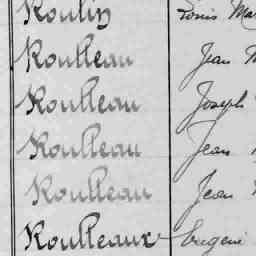 Roulin Louis Ma
Roulleau Jean M
Roulleau Joseph
Roulleau Jean
Roulleau Jean
Roulleaux Eugène